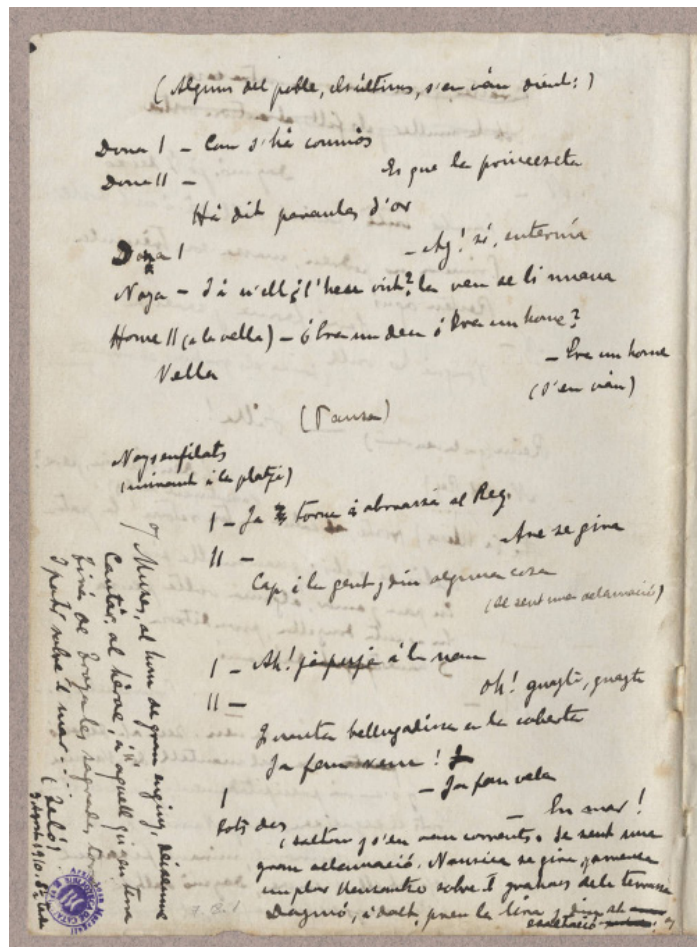 (Alguns del poble, els últims, s'en van dient:)
Dona I – Com s'ha conmòs
Dona II – Es que la princeseta
Ha dit paraules d'or
Dona I – Ay! si, enternia
Noya – I a n'ell ¿l'heu vist? la veu se li nuava
Home II (a la vella) – ¿Era un deu ó Era un home?
Vella – Era un home
(s'en van)
(Pausa)
Noys enfilats
(mirant á la platja)
I – Ja torna á abrassá al Rey.
II – Ara se gira
Cap á la gent y diu alguna cosa
(se sent una aclamació)
I – Ah! ja puja á la nau
II – Oh! guayta, guayta
Quanta bellugadissa a la coberta
Ja fan vela
I – En mar!
Tots dos, saltan y s'en van corrents. Se sent una
gran aclamació. Nausica se gira, y arrenca
un plor sobre els graons de la terrassa
Daymó, á dalt, pren la lira y diu
exaltació
O, Musa, al hom de gran enginy, deixeume
Cantar, al hèroe, á aquell qui en terra
de Troya les sagrades torres
I patí sobre 'l mar....
(Teló)
1910